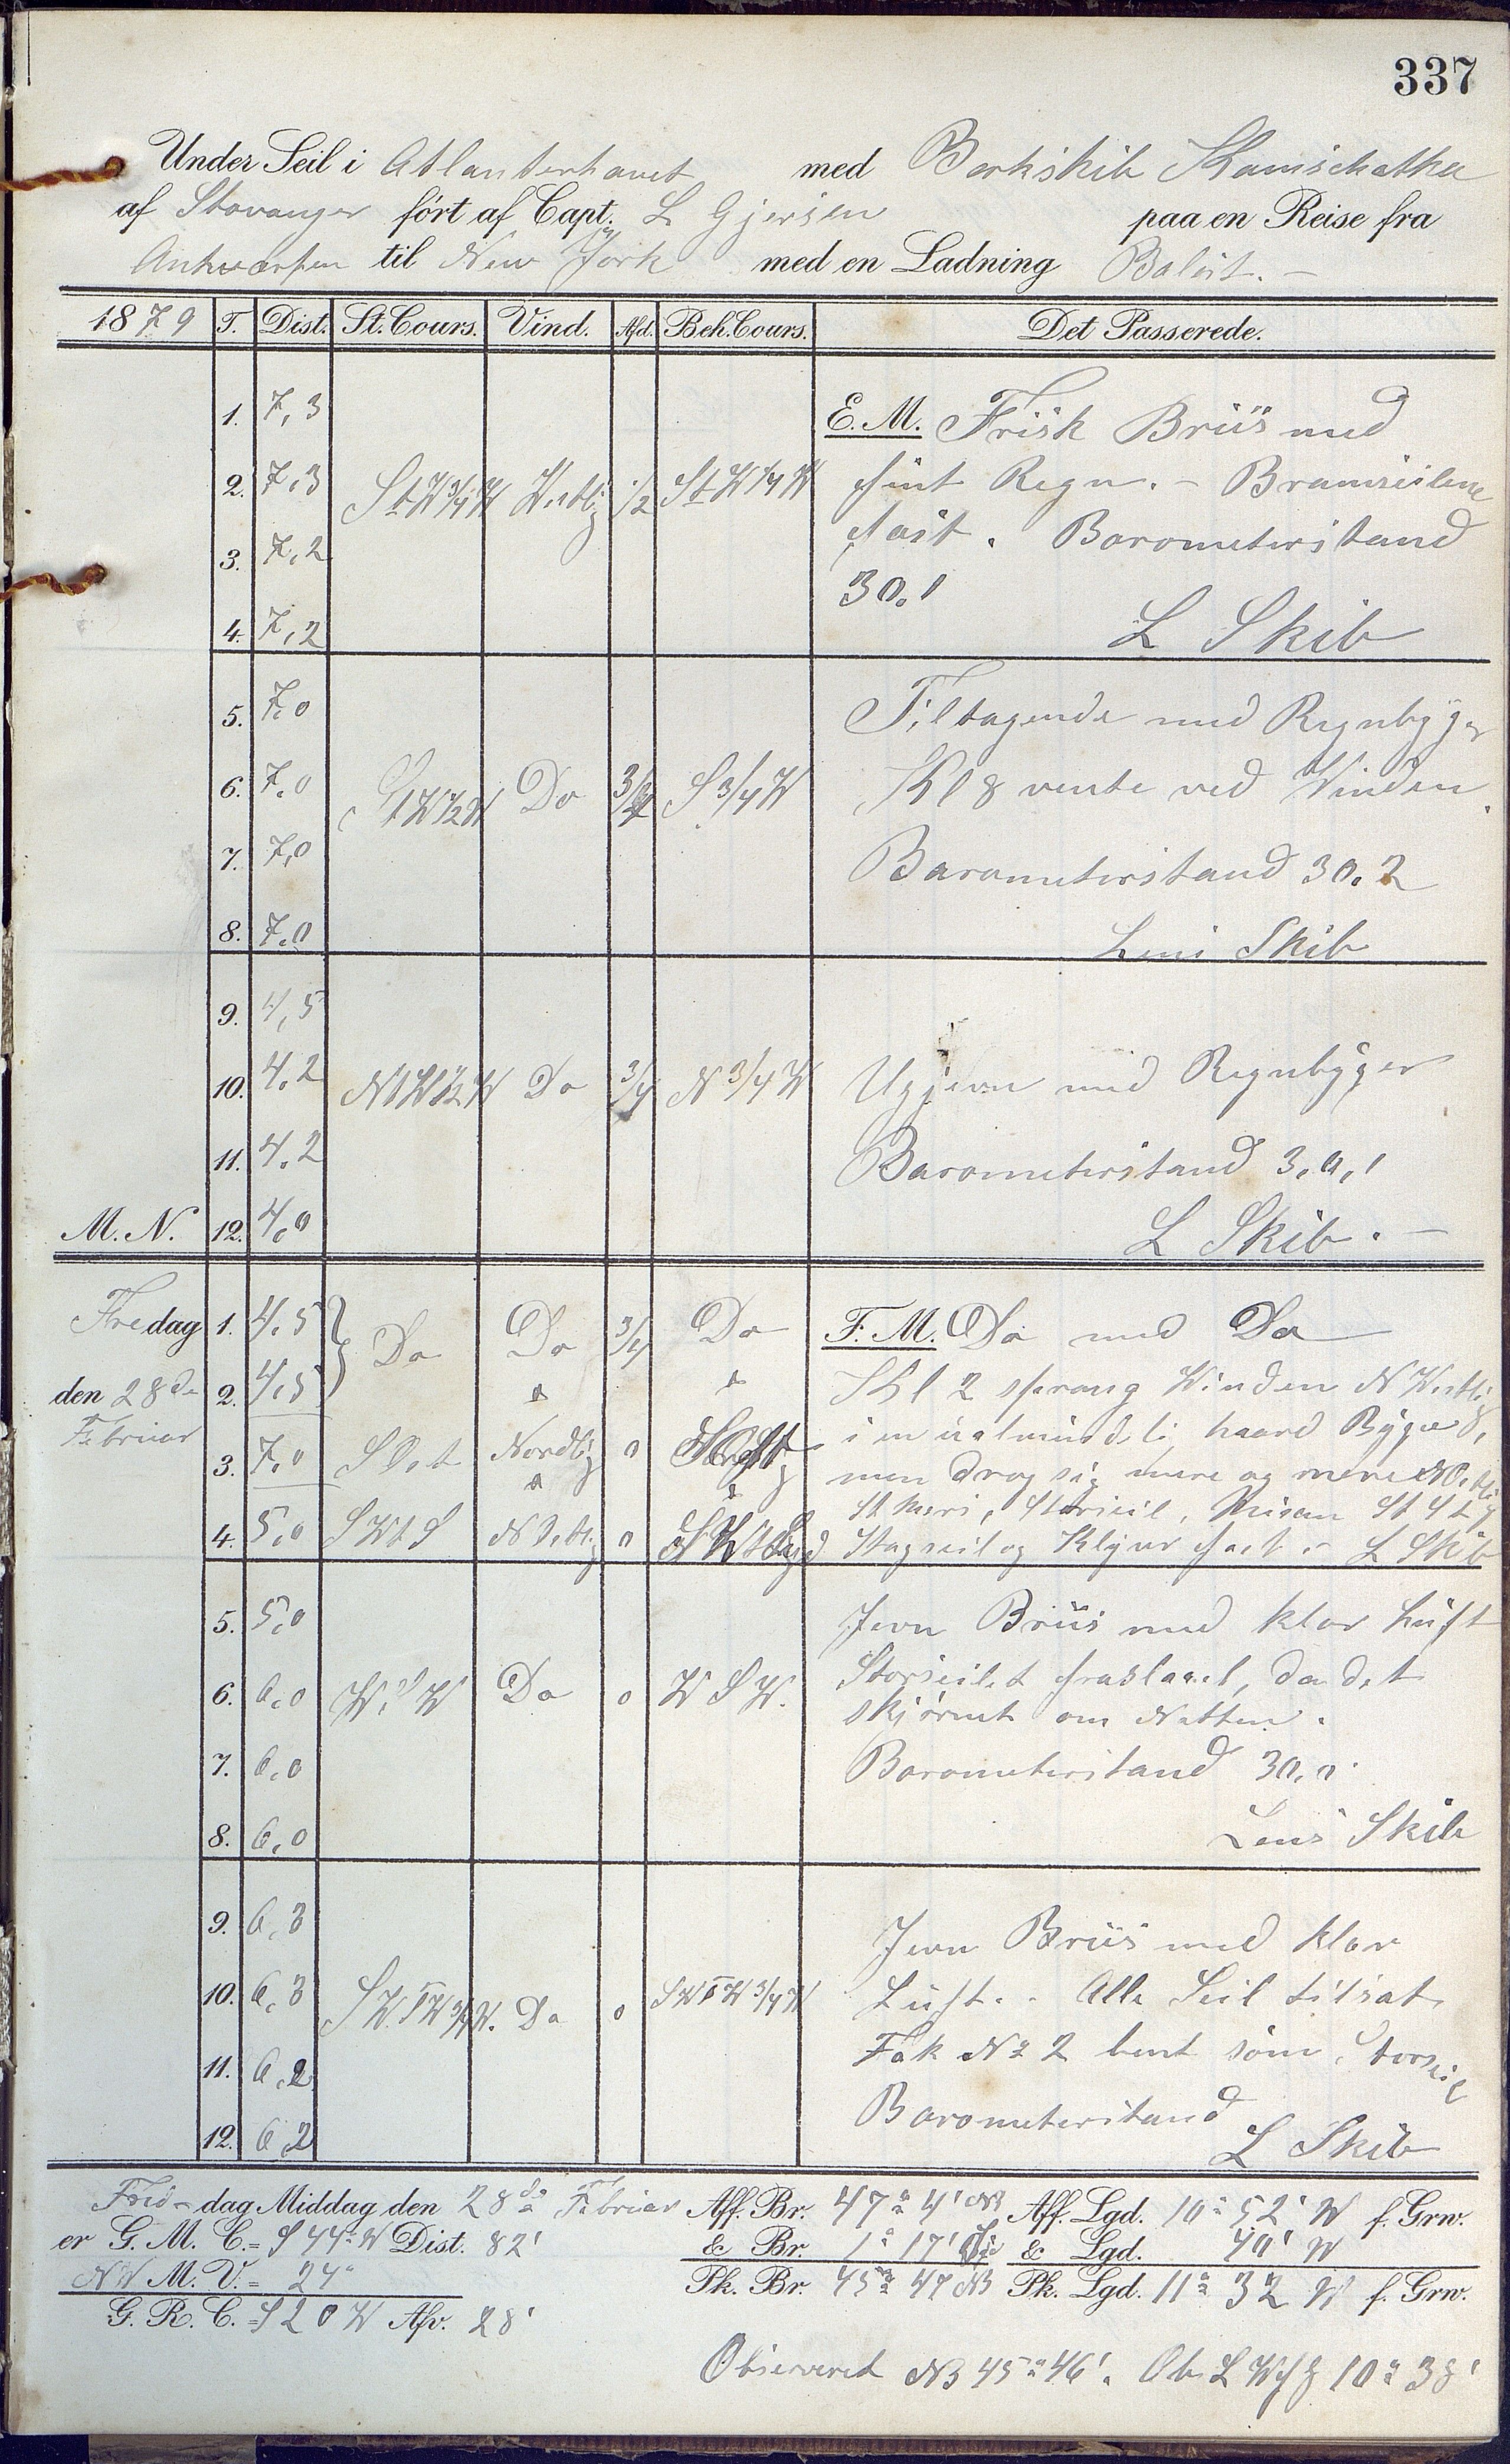 337
Under Seil i Atlanterhavet med Barkskib Kamschatka
af Stavanger ført af Capt. L Gjersen paa en Reise fra
Antwerpen til New York med en Ladning Balast. –
1879 T. Dist. St. Cours. Vind. Afd. Beh. Cours. Det Passerede.
1. 7,3 E.M. Frisk Briis med
2. 7,3 StW 3/4 W Vestlig 1/2 StW 1/4 W fint Regn. – Bramseilene
3. 7,2 fast. Barometerstand
30.1
4. 7,2 L Skib
5. 7.0 Tiltagende med Regnbyger
6. 7.0 StW 1/2 W Do 3/4 S 3/4 W Kl 8 vente ved Vinden.
7. 7,0 Barometerstand 30.2
8. 7.0 Lens Skib
9. 4,5
10. 4.2 NtW 1/2 W Do 3/4 N 3/4 W Ugjevn med Regnbyger
11. 4.2 Barometerstand 3.0,1
M. N. 12. 4.0 L Skib. –
Fredag 1. 4.5 Do Do 3/4 Do F.M. Do med Do
den 28de 2. 4,5 Kl 2 sprang Winden NVestlig
Februar i en ualmindeli haard Byge
3. 7.0 S Ost Nordlig 0 men drog sig mere og mere
St mers, Storseil, Misan
4. 5.0 SWtS NOstlig 0 Stagseil og Klyver fast. – L Skib
5. 5,0 Jevn Briis med klar Luft
6. 6.0 WSW Do 0 WSW. Storseilet fraslaaet, da det
skjørnet om Natten.
7. 6.0 Barometerstand 30.0
8. 6.0 Lens Skib
9. 6.3 Jevn Briis med klar
10. 6.3 SWTW 3/4 W. Do 0 SWTW 3/4 W Luft. . Alle Seil tilsat
11. 6.2 Fok No 2 bent som Storseil
Barometerstand
12. 6,2 L Skib
Fredag Middag den 28de Februar Aff. Br. 47° 4' NB Aff. Lgd. 10° 52' W f. Grw.
er G. M. C. = S 44° W Dist. 82' & Br. 1° 17' & Lgd. 40' W
NW M. V. = 24° Pk. Br. 45° 47 NB Pk. Lgd. 11° 32 W f. Grw.
G. R. C. = S 20 W Afv. 28'
Observeret NB 45° 46'. Ob. L 10° 38'